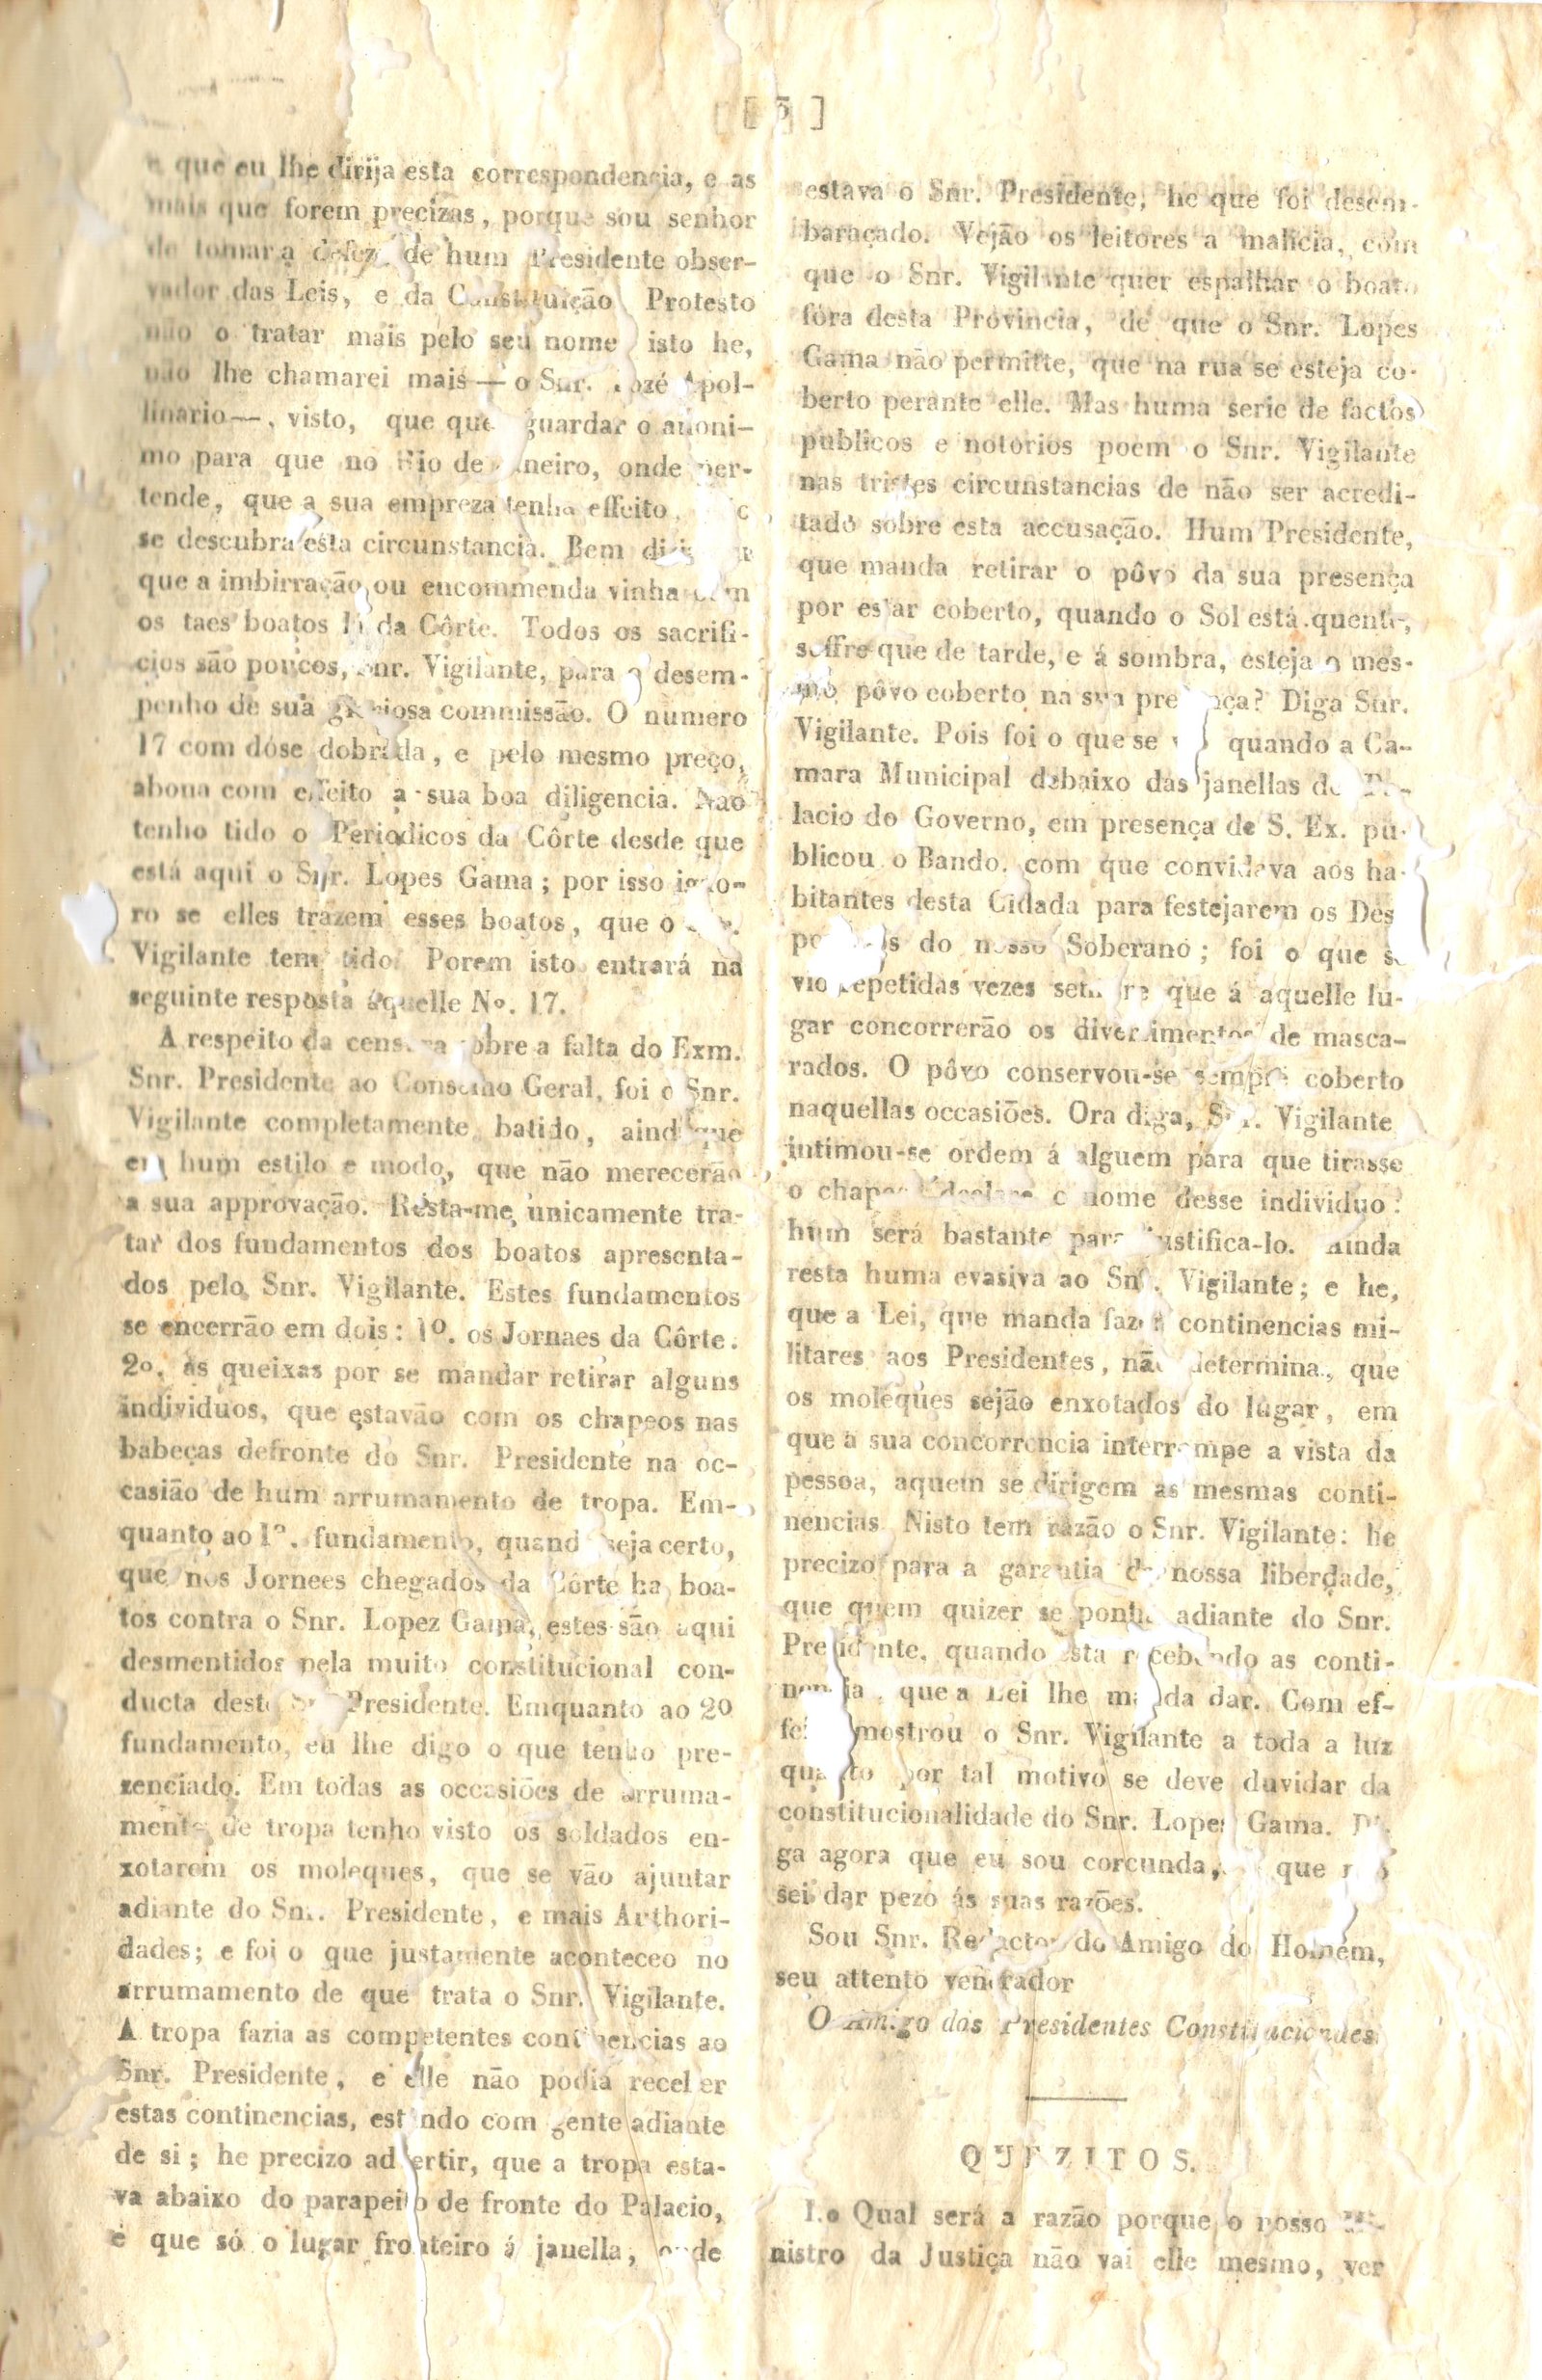 [ 3 ]
que eu lhe dirija esta correspondencia, e as
mais que forem precizas, porque sou senhor
de tomar a defeza de hum Presidente obser-
vador das Leis, e da Constituição Protesto
não o tratar mais pelo seu nome isto he,
não lhe chamarei mais — o Snr. Jozé Apol-
linario —, visto, que quer guardar o anoni-
mo para que no Rio de Janeiro, onde per-
tende, que a sua empreza tenha effeito,
se descubra esta circunstancia. Bem
que a imbirração, ou encommenda vinha com
os taes boatos lá da Côrte. Todos os sacrifi-
cios são poucos, Snr. Vigilante, para o desem-
penho de sua gloriosa commissão. O numero
17 com dóse dobrada, e pelo mesmo preço,
abona com effeito a sua boa diligencia. Não
tenho tido o Periodicos da Côrte desde que
está aqui o Snr. Lopes Gama; por isso igno-
ro se elles trazem esses boatos, que o Snr.
Vigilante tem tido. Porem isto entrará na
seguinte resposta áquelle Nº. 17.
A respeito da censura sobre a falta do Exm.
Snr. Presidente ao Conselho Geral, foi o Snr.
Vigilante completamente batido, ainda que
em hum estilo e modo, que não merecerão
a sua approvação. Resta-me unicamente tra-
tar dos fundamentos dos boatos apresenta-
dos pelo Snr. Vigilante. Estes fundamentos
se encerrão em dois: 1º. os Jornaes da Côrte.
2º. as queixas por se mandar retirar alguns
individuos, que estavão com os chapeos nas
babeças defronte do Snr. Presidente na oc-
casião de hum arrumamento de tropa. Em-
quanto ao 1º. fundamento, quando seja certo,
que nos Jornees chegados da Côrte ha boa-
tos contra o Snr. Lopez Gama, estes são aqui
desmentidos pela muito constitucional con-
ducta deste Snr. Presidente. Emquanto ao 2º
fundamento, eu lhe digo o que tenho pre-
zenciado. Em todas as occasiões de arruma-
mento de tropa tenho visto os soldados en-
xotarem os moleques, que se vão ajuntar
adiante do Snr. Presidente, e mais Authori-
dades; e foi o que justamente aconteceo no
arrumamento de que trata o Snr. Vigilante.
A tropa fazia as competentes continencias ao
Snr. Presidente, e elle não podia receber
estas continencias, estando com gente adiante
de si; he precizo advertir, que a tropa esta-
va abaixo do parapeito de fronte do Palacio,
e que só o lugar fronteiro á janella, onde
estava o Snr. Presidente, he que foi desem-
baraçado. Vejão os leitores a malicia, com
que o Snr. Vigilante quer espalhar o boato
fóra desta Provincia, de que o Snr. Lopes
Gama não permitte, que na rua se esteja co-
berto perante elle. Mas huma serie de factos
publicos e notorios poem o Snr. Vigilante
nas tristes circunstancias de não ser acredi-
tado sobre esta accusação. Hum Presidente,
que manda retirar o pôvo da sua presença
por estar coberto, quando o Sol está quente,
soffre que de tarde, e á sombra, esteja o mes-
mo pôvo coberto na sua presença? Diga Snr.
Vigilante. Pois foi o que se vio quando a Ca-
mara Municipal debaixo das janellas do Pa-
lacio do Governo, em presença de S. Ex. pu-
blicou o Bando, com que convidava aos ha-
bitantes desta Cidada para festejarem os Des
pozorios do nosso Soberano; foi o que se
vio repetidas vezes sempre que á aquelle lu-
gar concorrerão os divertimentos de masca-
rados. O pôvo conservou-se sempre coberto
naquellas occasiões. Ora diga, Snr. Vigilante
intimou-se ordem á alguem para que tirasse
o chapeo? declare o nome desse individuo:
hum será bastante para justifica-lo. Ainda
resta huma evasiva ao Snr. Vigilante; e he,
que a Lei, que manda fazer continencias mi-
litares aos Presidentes, não determina, que
os moleques sejão enxotados do lugar, em
que a sua concorrencia interrompe a vista da
pessoa, aquem se dirigem as mesmas conti-
nencias. Nisto tem razão o Snr. Vigilante: he
precizo para a garantia da nossa liberdade,
que quem quizer se ponha adiante do Snr.
Presidente, quando esta recebendo as conti-
nencias, que a Lei lhe manda dar. Com ef-
feito mostrou o Snr. Vigilante a toda a luz
quanto por tal motivo se deve duvidar da
constitucionalidade do Snr. Lopes Gama. Di-
ga agora que eu sou corcunda, que não
sei dar pezo ás suas razões.
Sou Snr. Redactor do Amigo do Homem,
seu attento venerador
O Amigo dos Presidentes Constitucionaes.
QUEZITOS.
1.º Qual será a razão porque o nosso Mi-
nistro da Justiça não vai elle mesmo, ver